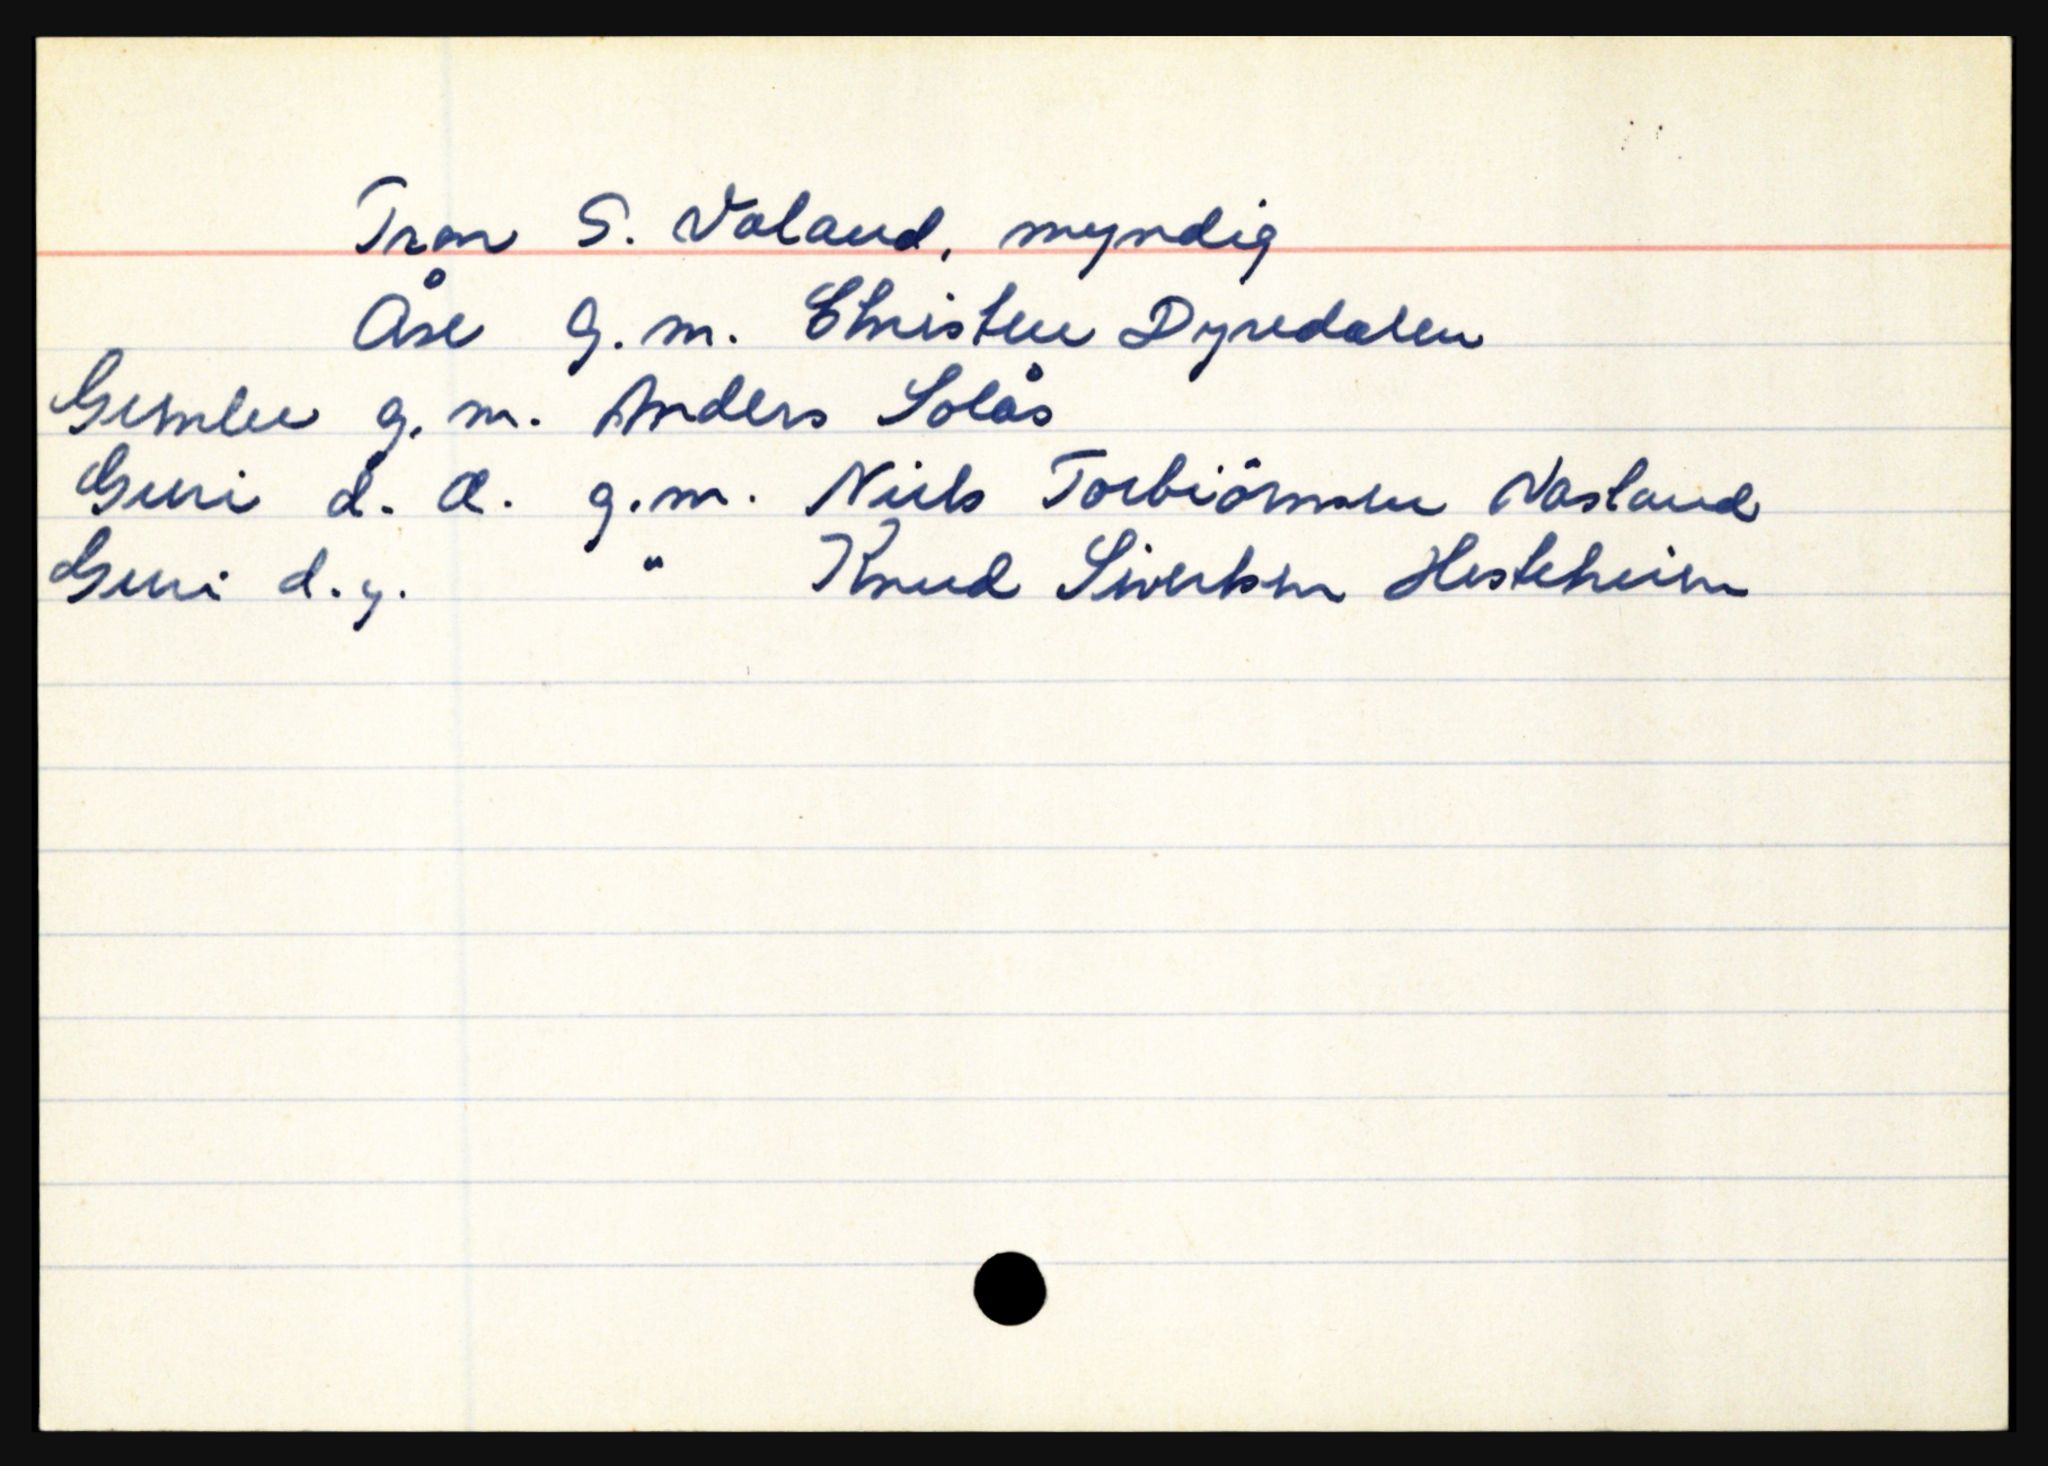 Tron S. Valand, myndig
Åse g.m. Christen Dyredalen
g.m. Anders Solås
Guri d. Æ. g.m. Niels Torbiörnsen Nasland
Guri d.y. " Knud Siversen Hesteheim